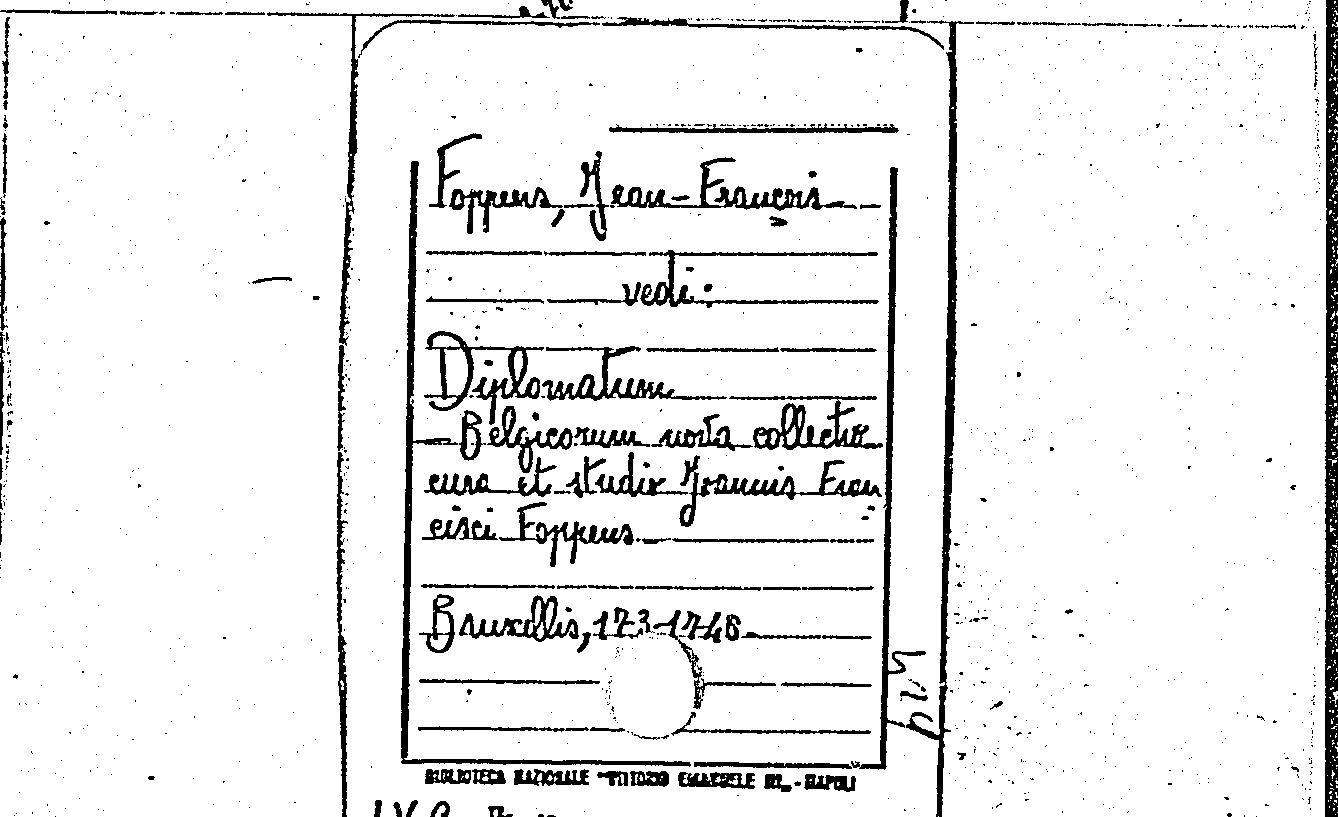 Foppens, Jean-François
vedi:
Diplomatum
Belgicorum nova collectio
cura et studio Joannis Fran
cisci Foppens
Bruxellis, 173-1748
BIBLIOTECA NAZIONALE "VITTORIO EMANUELE III" - NAPOLI